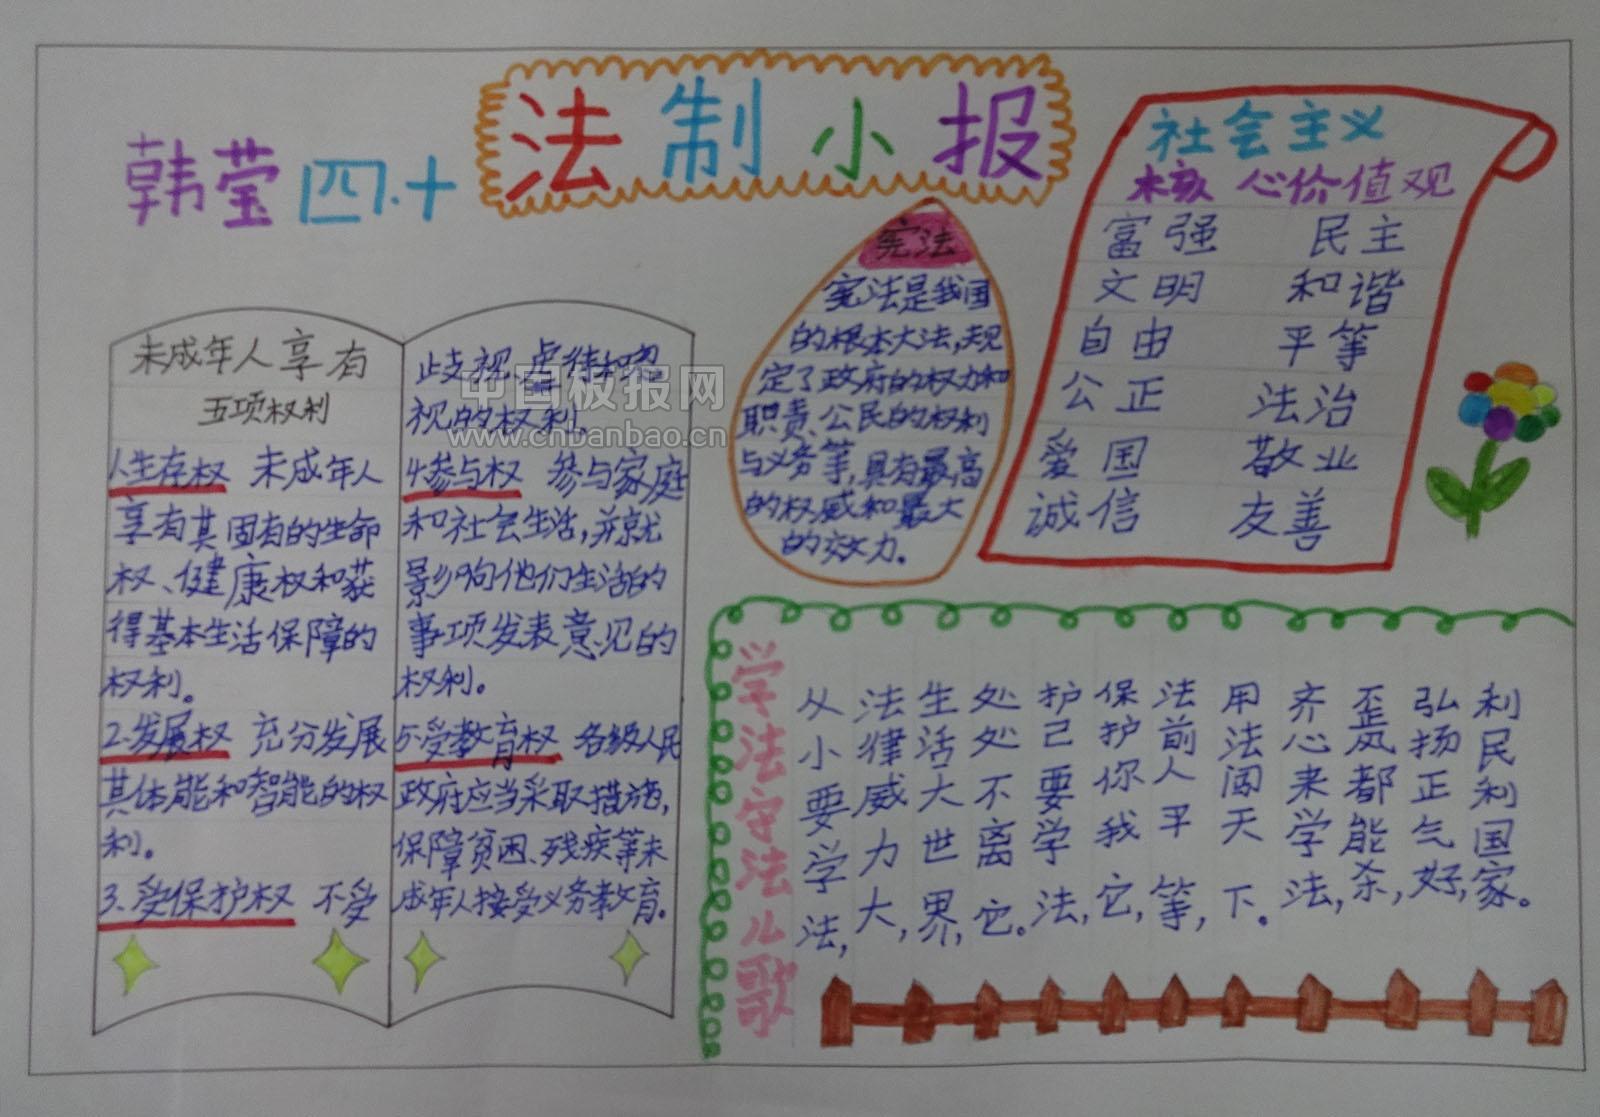 韩莹 四.十
法制小报
未成年人享有
五项权利
1.生存权 未成年人
享有其固有的生命
权、健康权和获
得基本生活保障的
权利。
2.发展权 充分发展
其体能和智能的权
利。
3.受保护权 不受
歧视、虐待和忽
视的权利。
4.参与权 参与家庭
和社会生活,并就
影响他们生活的
事项发表意见的
权利。
5.受教育权 各级人民
政府应当采取措施,
保障贫困、残疾等未
成年人接受义务教育。
中国板报网
www.cnbanbao.cn
宪法
宪法是我国
的根本大法,规
定了政府的权力和
职责、公民的权利
与义务等,具有最高
的权威和最大
的效力。
社会主义
核心价值观
富强 民主
文明 和谐
自由 平等
公正 法治
爱国 敬业
诚信 友善
学法守法儿歌
从小要学法,
法律威力大,
生活大世界,
处处不离它。
护己要学法,
保护你我它,
法前人平等,
用法闯天下。
齐心来学法,
歪风都能杀,
弘扬正气好,
利民利国家。